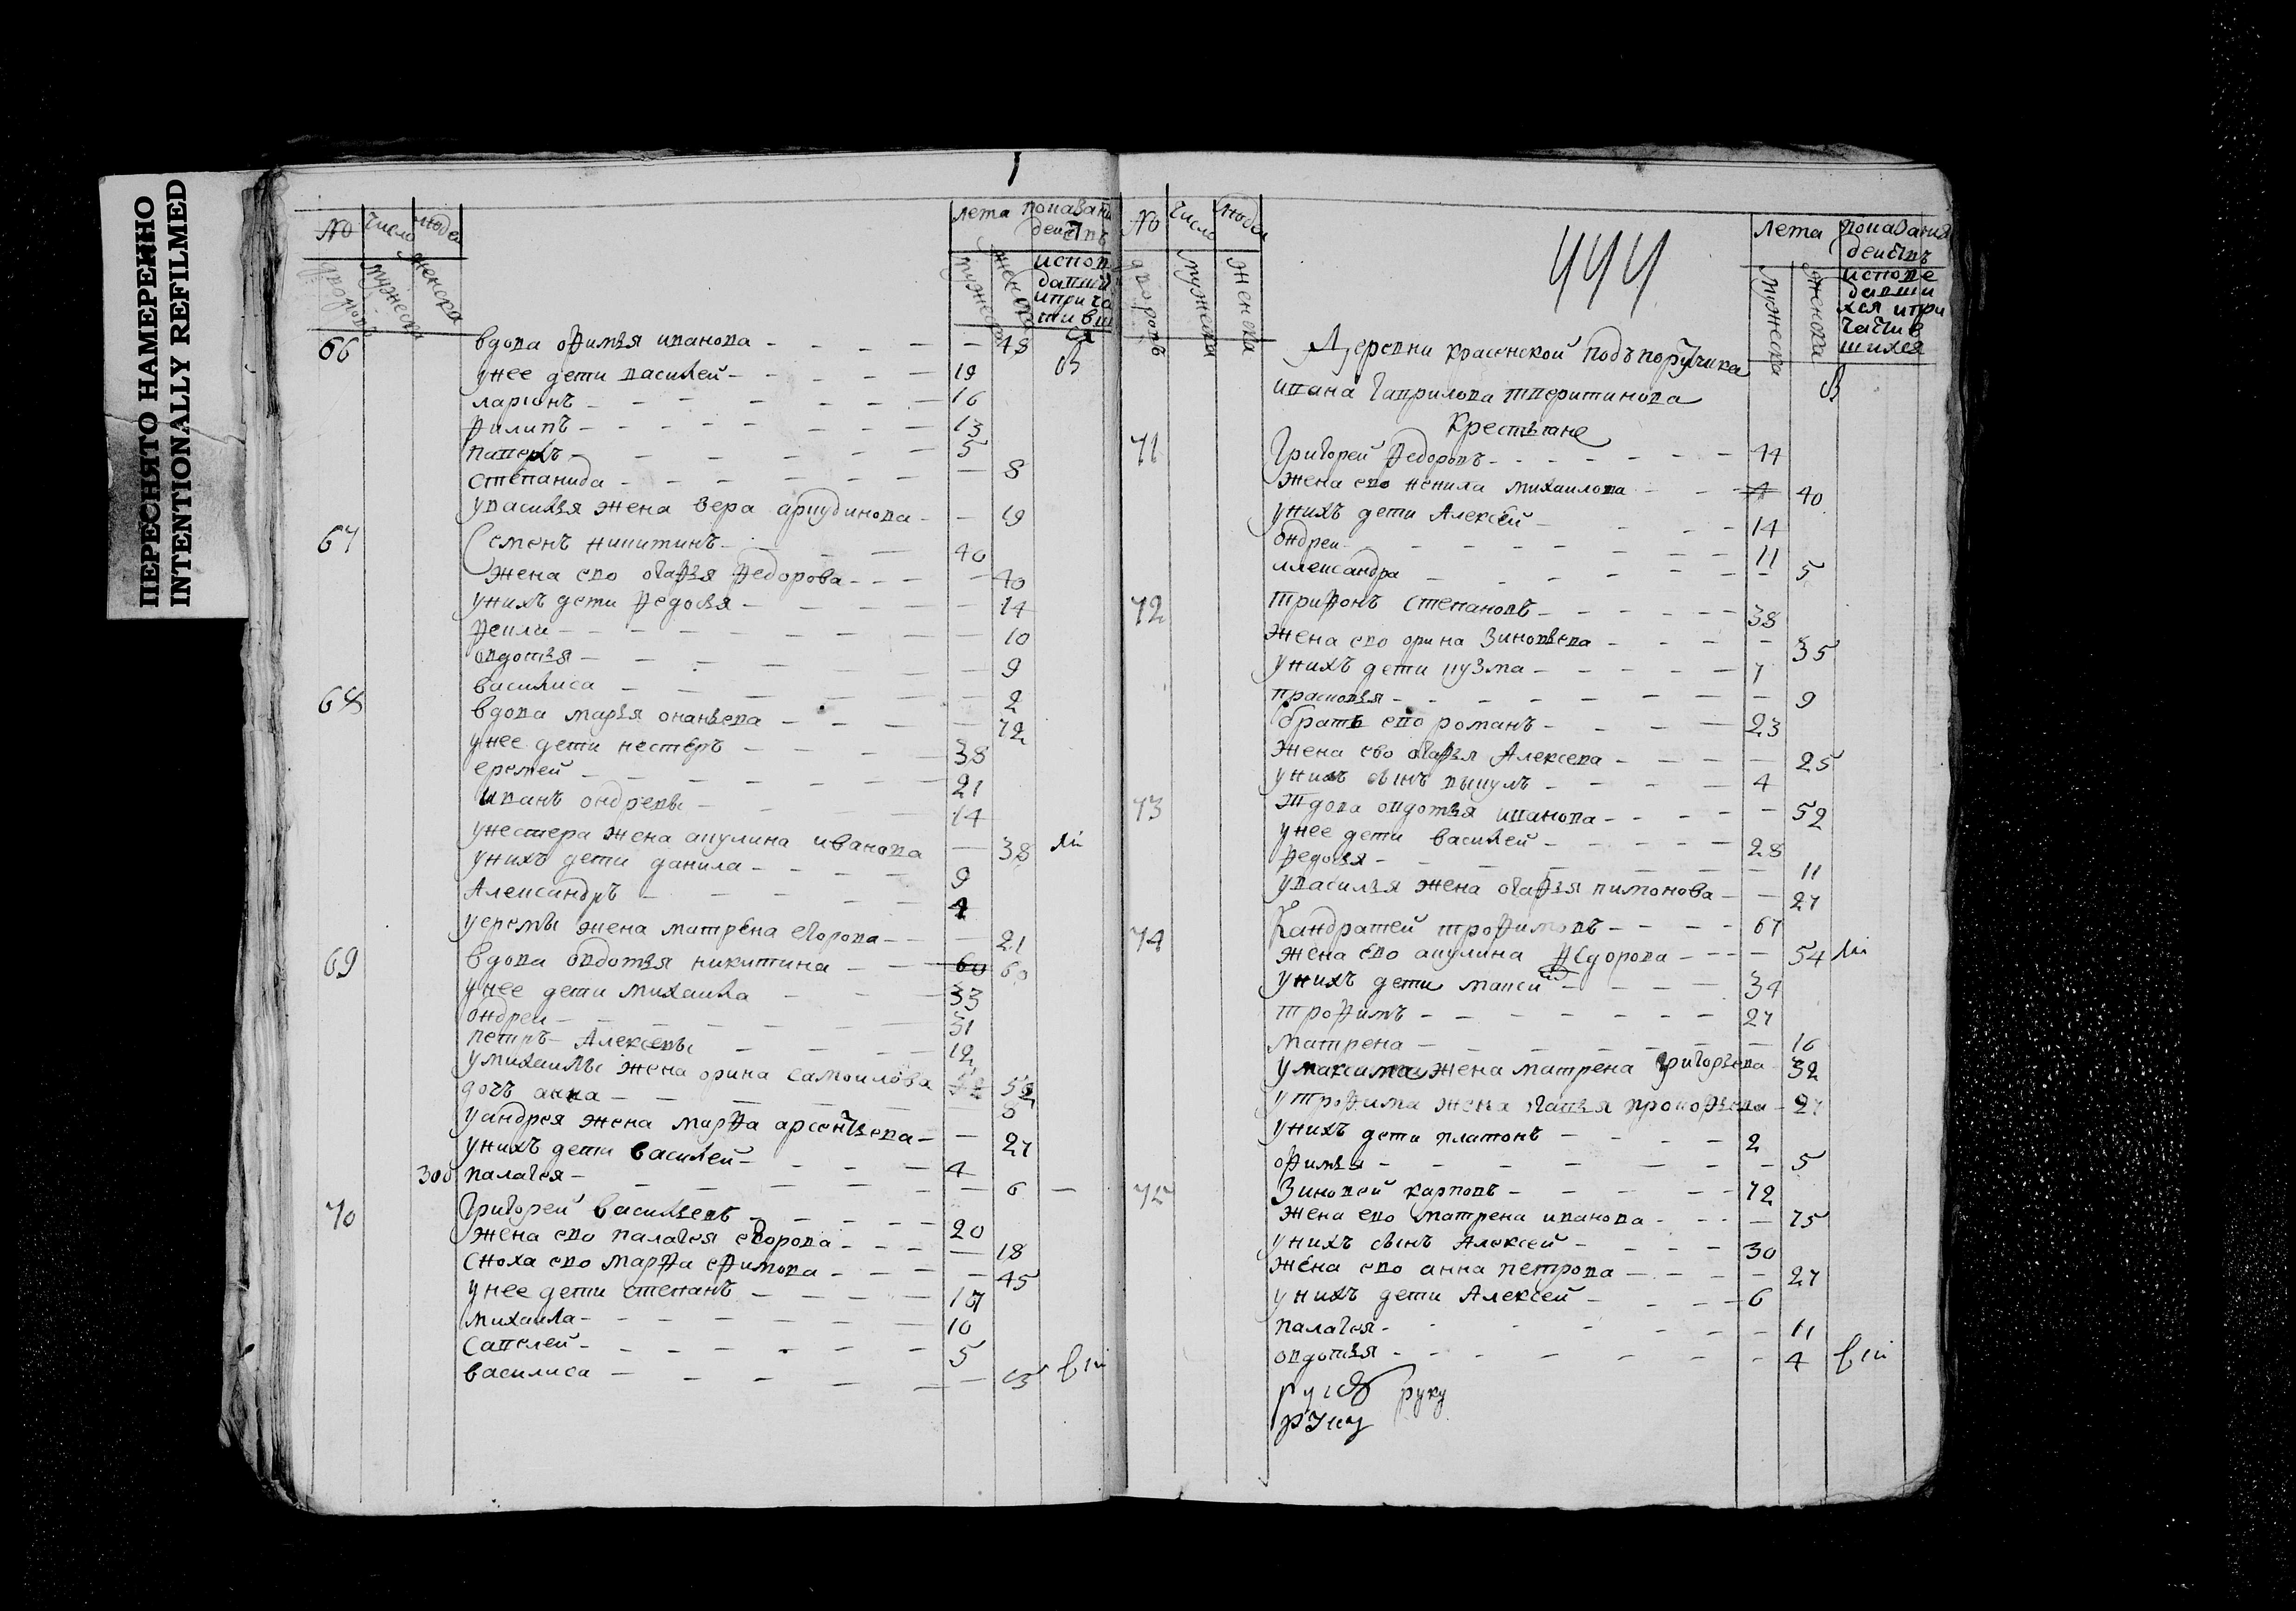 ПЕРЕСНЯТО НАМЕРЕННО
INTENTIONALLY REFILMED
№ число людей лета показани действъ
дворовъ мужеска женска мужеска женска испове давши и прича тивш ся
66 вдова офимья иванова - 48
у нее дети василей - 19
ларионъ - 16
филипъ - 13
- 5
степанида - 8
у василья жена вера - 19
67 Семенъ никитинъ - 40
жена ево огафья федорова - 40
у нихъ дети федосья - 14
фекла - 10
овдотья - 9
василиса - 2
68 вдова марья онаньева - 72
у нее дети нестеръ - 38
еремей - 21
иванъ ондреевы - 14
у нестера жена акулина иванова - 38
у нихъ дети данила - 9
Александръ - 4
у еремы жена матрена егорова - 21
69 вдова овдотья никитина - 60 60
у нее дети михаила - 33
ондреи - 31
петръ Алексеевы - 12
у михаилы жена орина самоилова
дочь анна -
у андрея жена марфа арсентьева - 27
у нихъ дети василей - 4
300 палагея - 6 -
70 Григорей васильевъ - 20
жена ево палагея егорова - 18
сноха ево марфа ефимова - 45
у нее дети степанъ - 17
михаила - 10
савелей - 5
василиса -
№ число людей 444 лета показания действъ
дворовъ мужеска женска мужеска женска испове давши хся и при частив шихся
Деревни красенской подъпоручика
ивана гаврилова твеританова
крестьяне
71 Григорей федоровъ - 44
жена ево ксенила михаилова - 40
у нихъ дети Алексей - 14
ондреи - 11
Александра - 5
72 трифонъ степановъ - 38
жена ево орина зиновьева - 35
у нихъ дети кузма - 7
прасковья - 9
братъ ево романъ - 23
жена ево огафья Алексеева - 25
у нихъ сынъ викулъ - 4
73 вдова овдотья иванова - 52
у нее дети василей - 28
федосья - 11
у василья жена огафья пимонова - 27
74 Кандратей трофимовъ - 67
жена ево акулина федорова - 54
у нихъ дети максимъ - 34
трофимъ - 27
матрена - 16
у максима жена матрена григорьева 32
у трофима жена огафья прокофьева - 27
у нихъ дети платонъ - 2
офимья - 5
75 Зиновей карповъ - 72
жена ево матрена иванова - 75
у нихъ сынъ Алексей - 30
жена ево анна петрова - 27
у нихъ дети Алексей - 6
палагея - 11
овдотья - 4
руку